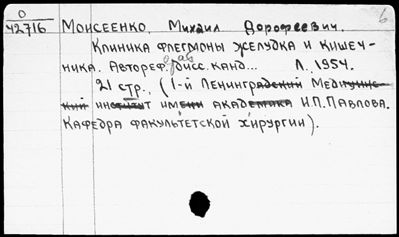 0
42716 Моисеенко, Михаил Дорофеевич. б
Клиника флегмоны желудка и кишеч-
ника. Автореф. дисс. канд... Л. 1954.
21 стр. (1-й Ленинградский Медицинс-
кий институт имени академика И.П. Павлова.
Кафедра факультетской хирургии).